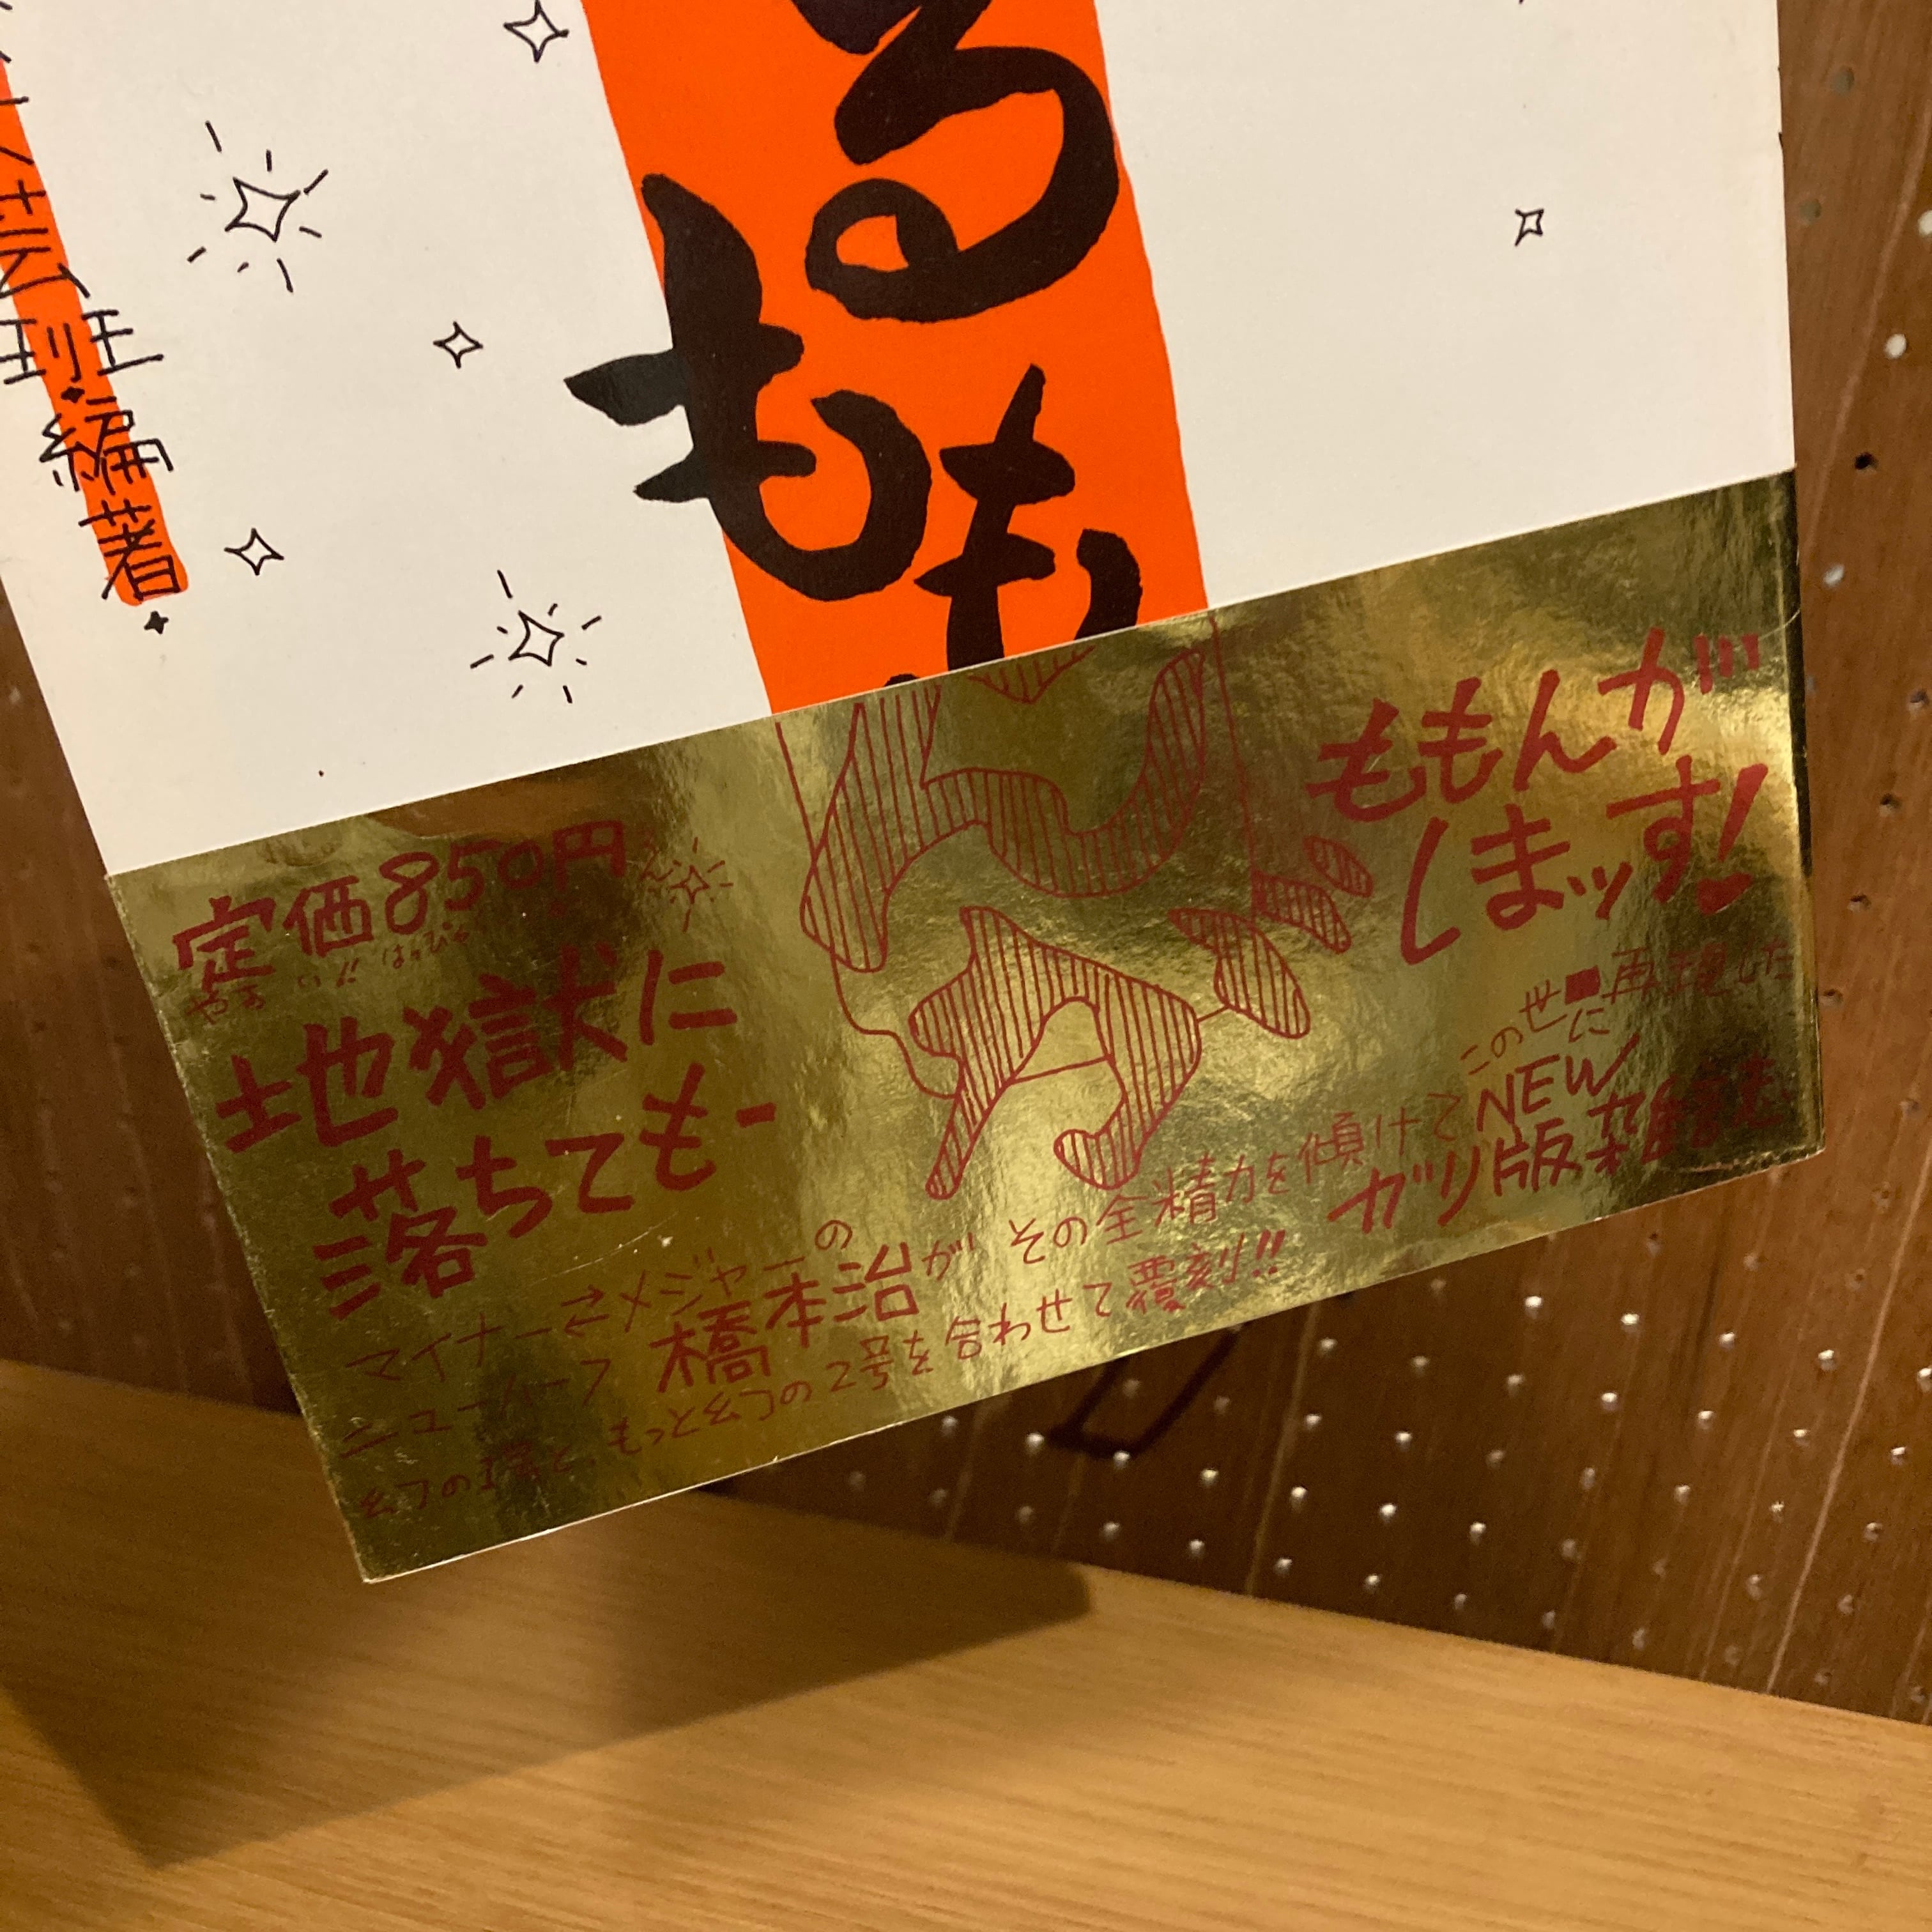 るもも
班・編著・
定価850円
地獄に
落ちても
ももんが
しまッす!
マイナー⇄メジャーの
ニューハーフ 橋本治が その全精力を傾けて この世に再現した
NEW
ガリ版雑誌
幻の1号と、もっと幻の2号を合わせて覆刻!!